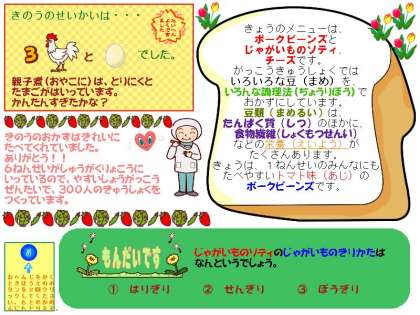 きのうのせいかいは・・・
3 と でした。
親子煮(おやこに)は、とりにくと
たまごがはいっています。
かんたんすぎたかな？
きのうのおかずはきれいに
たべてくれていました。
ありがとう！！
6ねんせいがしゅうがくりょこうに
いっているので、やすいしょうがっこう
ぜんたいで、300人のきゅうしょくを
つくっています。
きょうのメニューは、
ポークビーンズと
じゃがいものソティ、
チーズです。
がっこうきゅうしょくでは
いろいろな豆（まめ）を、
いろんな調理法(ちょうりほう)で
おかずにしています。
豆類（まめるい）は、
たんぱく質（しつ）のほかに、
食物繊維(しょくもつせんい)
などの栄養（えいよう）が
たくさんあります。
きょうは、1ねんせいのみんなにも
たべやすいトマト味（あじ）の
ポークビーンズです。
もんだいです
じゃがいものソティのじゃがいものきりかたは
なんというでしょう。
① はりぎり ② せんぎり ③ ぼうぎり